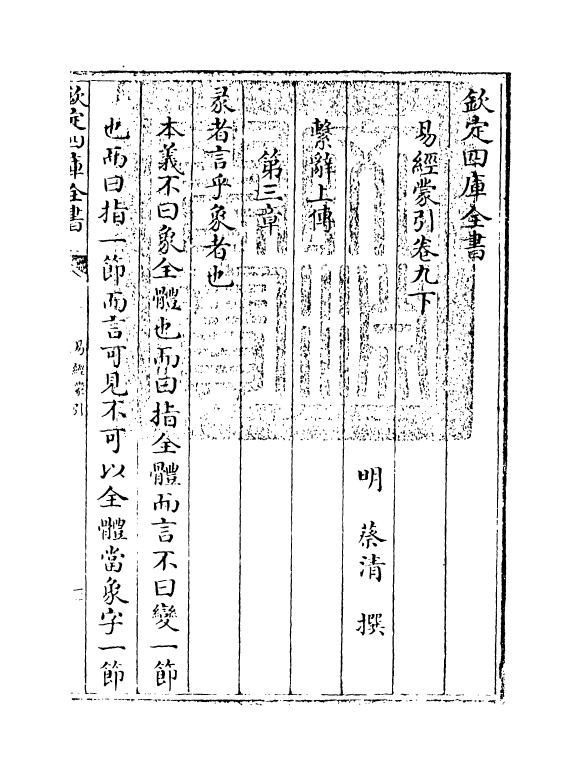 欽定四庫全書
易經蒙引卷九下
明 蔡清 撰
繫辭上傳
第三章
彖者言乎象者也
本義不曰象全體也而曰指全體而言不曰變一節
也而曰指一節而言可見不可以全體當象字一節
欽定四庫全書
易經蒙引
一